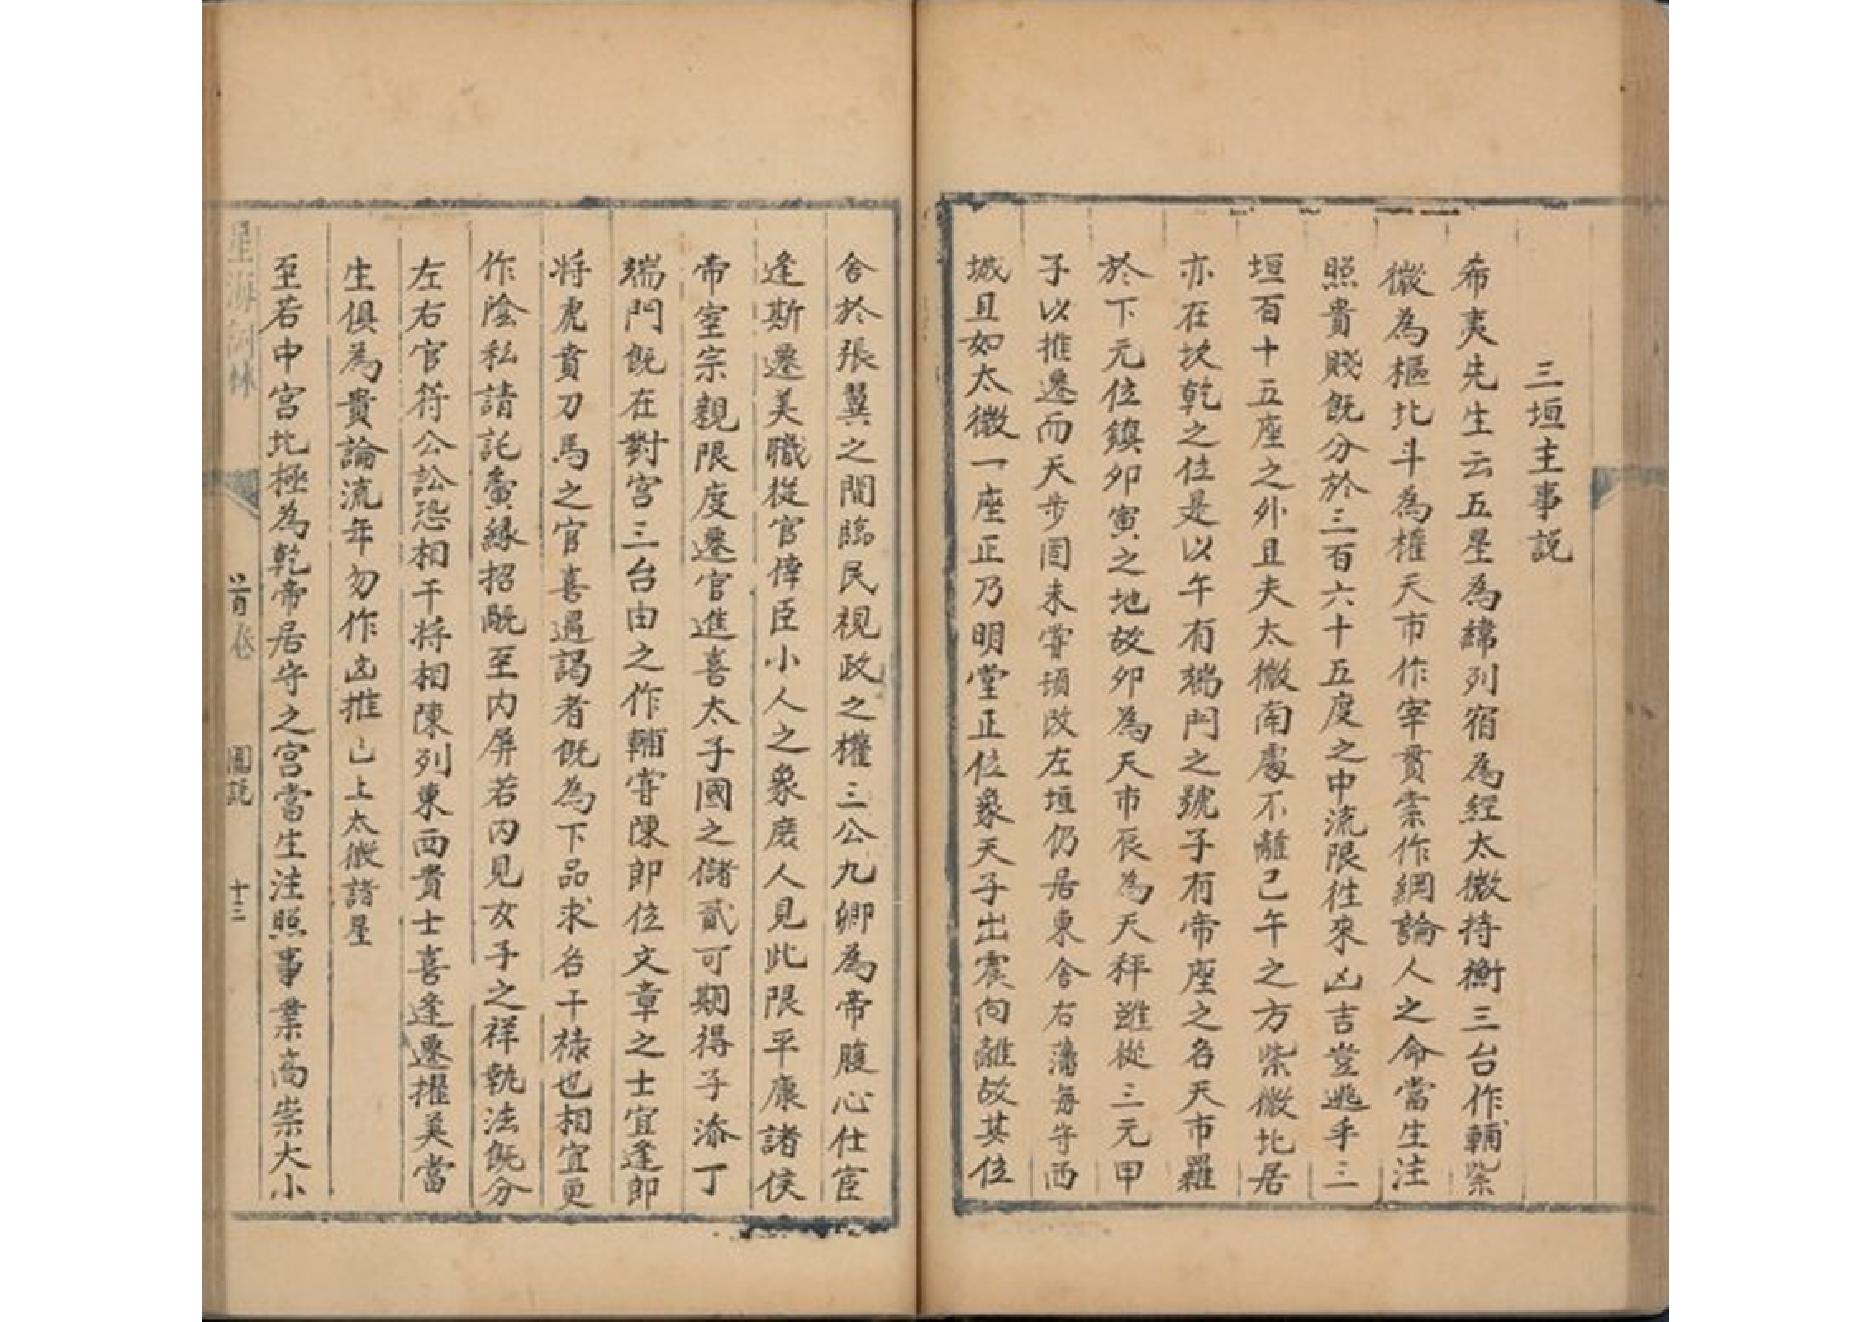 三垣主事説
希夷先生云五星為緯列宿為經太微持衡三台作輔紫
微為樞北斗為權天市作宰貫索作綱論人之命當生注
照貴賤既分於三百六十五度之中流限徃來凶吉豈逃乎三
垣百十五座之外且夫太微南處不離己午之方紫微北居
亦在坎乾之位是以午有端門之號子有帝座之名天市羅
於下元位鎮夘寅之地故夘為天市辰為天秤雖從三元甲
子以推遷而天步固未甞頃改左垣仍居東舍右藩每守西
城且如太微一座正乃明堂正位象天子出震向離故其位
舍於張翼之間臨民視政之權三公九卿為帝腹心仕宦
逢斯遷美職從官倖臣小人之象庶人見此限平康諸侯
帝室宗親限度遷官進喜太子國之儲貳可期得子添丁
端門既在對宮三台由之作輔常陳郎位文章之士宜逢郎
将虎賁刀馬之官喜遇謁者既為下品求名干祿也相宜更
作陰私請託夤緣招既至内屏若内見女子之祥執法既分
左右官符公訟恐相干将相陳列東西貴士喜逢遷擢美當
生俱為貴論流年勿作凶推已上太微諸星
至若中宮北極為乾帝居守之宮當生注照事業高崇大小
星海詞林
首卷
圖説
十三